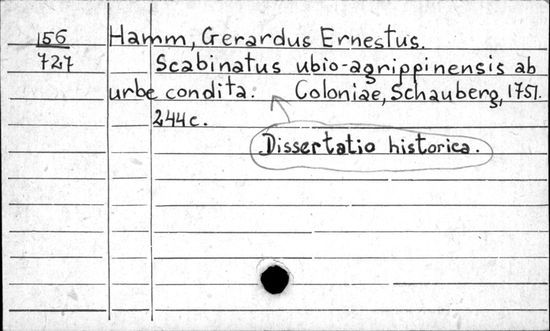 156 Hamm, Gerardus Ernestus.
727 Scabinatus ubio-agrippinensis ab
urbe condita. Coloniae, Schauberg, 1751.
244 c.
Dissertatio historica.